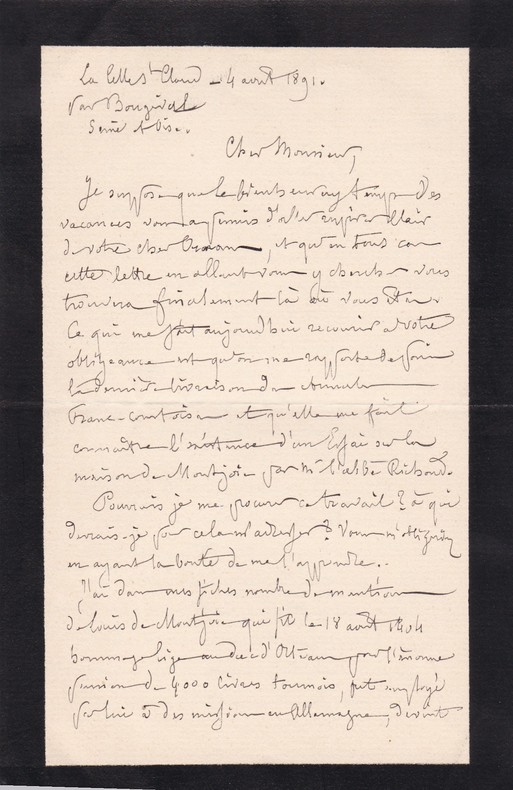 La Celle St Cloud - 4 août 1891.
par Bougival
Seine et Oise.
Cher Monsieur,
Je suppose que le bienheureux temps des
vacances vous a permis d'aller respirer l'air
de votre cher Ornans, et qu'en tous cas
cette lettre en allant vous y chercher vous
trouvera finalement là où vous êtes.
Ce qui me fait aujourd'hui recourir à votre
obligeance est qu'on me rapporte de
la dernière livraison des Annales
Franc-comtoises et qu'elle me fait
connaître l'existence d'un Essai sur la
maison de Montjoie par Mr l'abbé Richard.
Pourrais je me procurer ce travail ? à qui
devrais-je pour cela m'adresser ? Vous m'obligeriez
en ayant la bonté de me l'apprendre.
J'ai dans mes fiches nombre de mentions
de Louis de Montjoie qui fit le 18 août 1404
hommage lige au duc d'Orléans pour l'énorme
pension de 4000 livres tournois, fut employé
par lui à des missions en Allemagne, devint